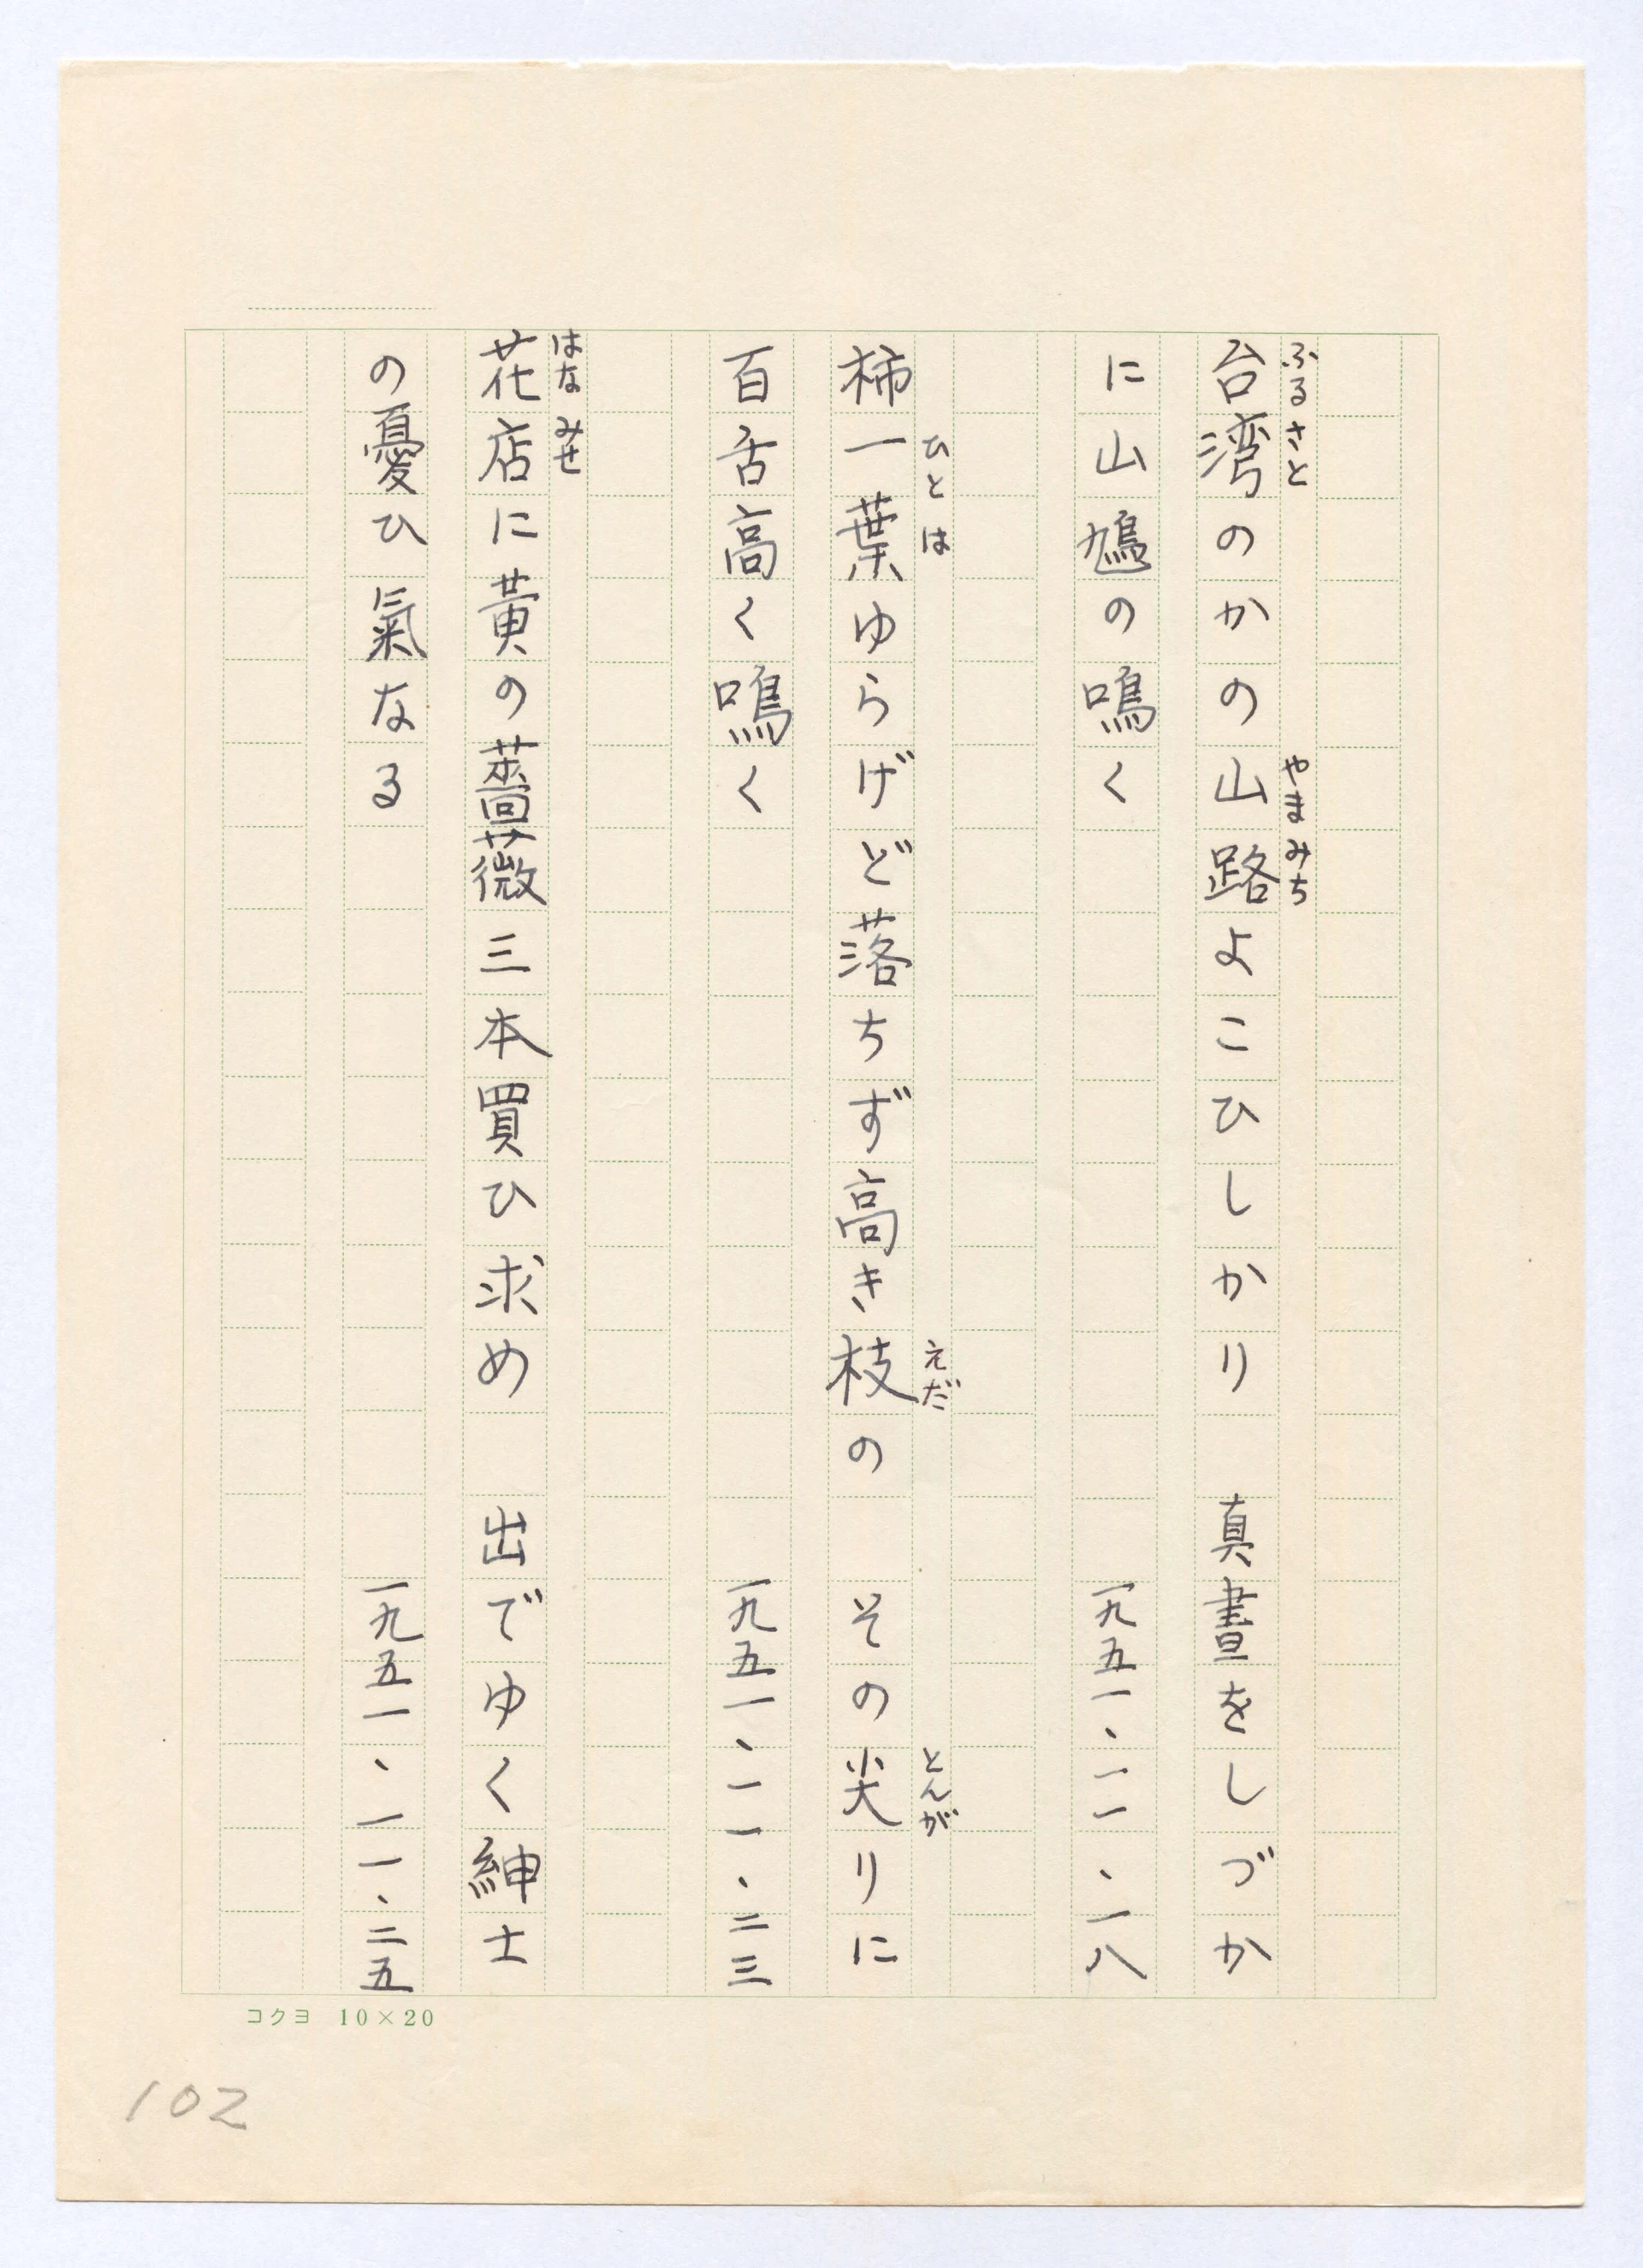 台湾のかの山路よこひしかり　真晝をしづか
ふるさと
やまみち
に山鳩の鳴く
一九五一、一一、一八
柿一葉ゆらげど落ちず高き枝の　その尖りに
ひとは
えだ
とんが
百舌高く鳴く
一九五一、一一、二三
花店に黄の薔薇三本買ひ求め　出でゆく紳士
はなみせ
の憂ひ氣なる
一九五一、一一、二五
コクヨ 10×20
102